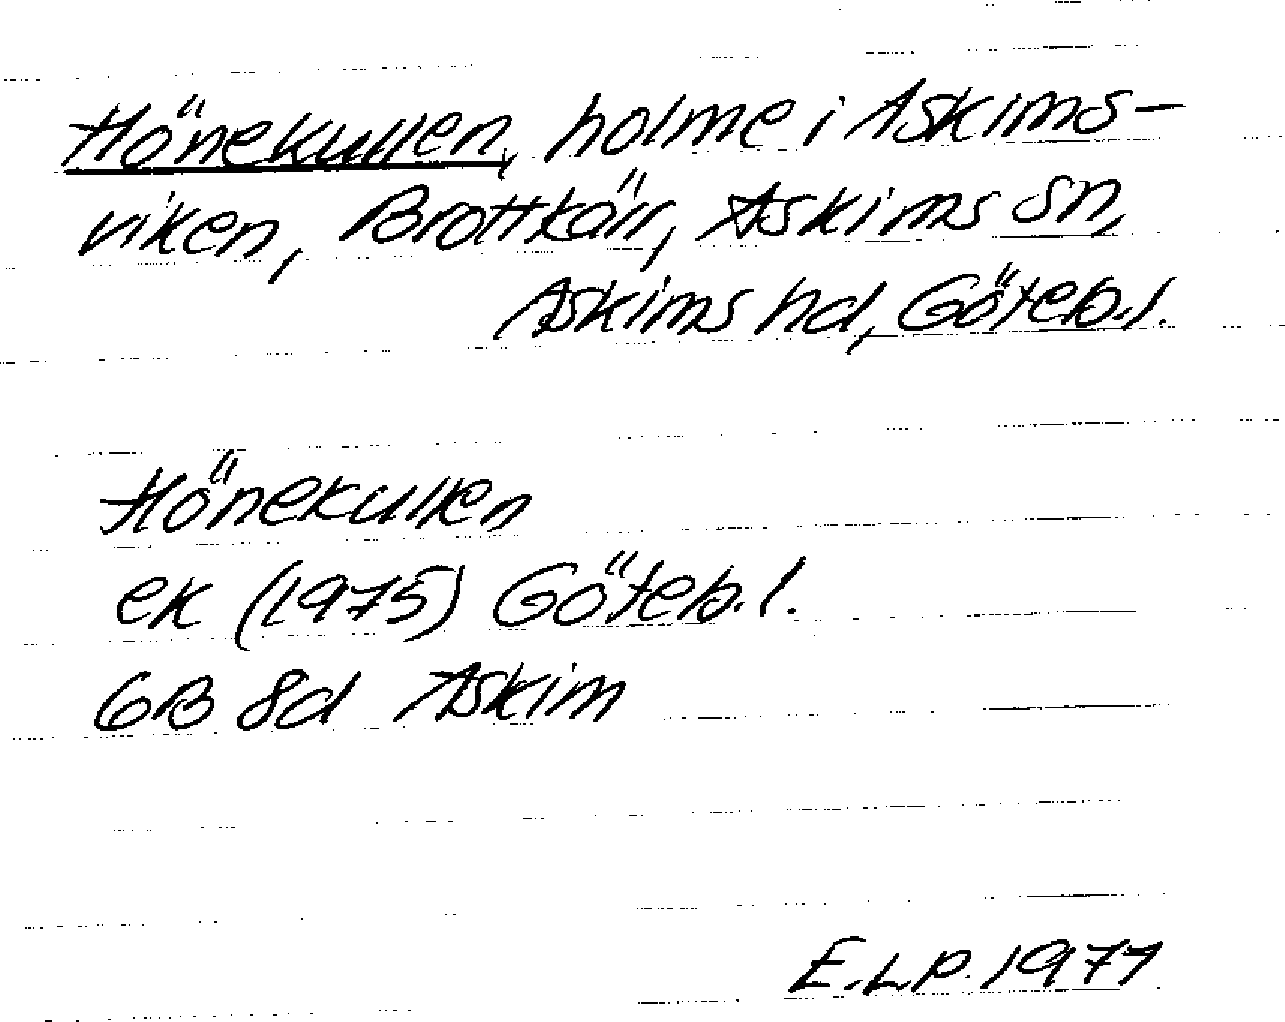 Hönekullen, holme i Askims-
viken, Brottkärr, Askims sn,
Askims hd, Göteb.l.
Hönekullen
ek (1975) Göteb.l.
6B 8d Askim
E.L.P. 1977